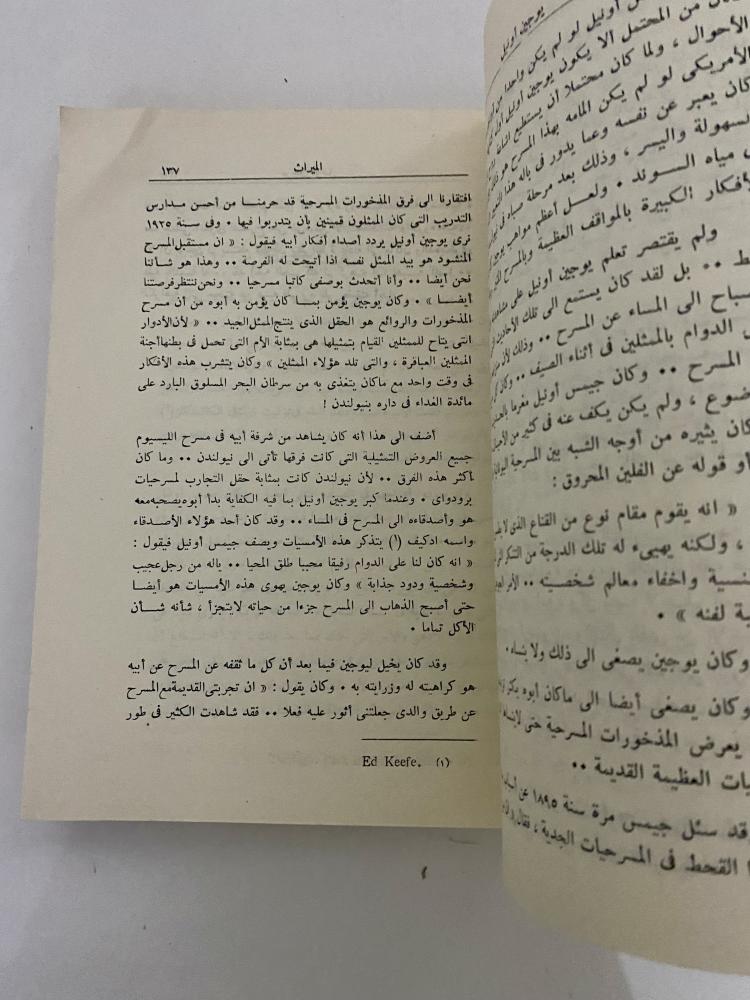 يوجين أونيل
أونيل لو لم يكن واحدا من
من المحتمل ألا يكون يوجين أونيل
الأحوال ، ولما كان محتملا أن يستطيع
الأمريكى لو لم يكن المامه بهذا المسرح
كان يعبر عن نفسه وعما يدور فى باله هذا
السهولة واليسر ، وذلك بعد مرحلة
مياه السوند ٠ ولعل أعظم مواهب
الأفكار الكبيرة بالمواقف العظيمة وبالمسرح
ولم يقتصر تعلم يوجين أونيل على
٠٠ بل لقد كان يستمع الى تلك الأحاديث
الى المساء عن المسرح ٠٠ وذلك
الدوام بالممثلين فى أثناء الصيف ٠٠
المسرح ٠٠ وكان جيمس أونيل مغرما
، ولم يكن يكف عنه فى كثير من
كان يثيره من أوجه الشبه بين المسرحية
أو قوله عن الفلين المحروق :
« انه يقوم مقام نوع من القناع الذى
، ولكنه يهيىء له تلك الدرجة من التنكر
واخفاء معالم شخصيته ٠٠
لفنه » ٠
وكان يوجين يصغى الى ذلك ولا ينساه ٠
وكان يصغى أيضا الى ماكان أبوه
يعرض المذخورات المسرحية حتى
العظيمة القديمة ٠٠
سئل جيمس مرة سنة ١٨٩٥ عن
القحط فى المسرحيات الجدية ، فقال
الميراث
١٣٧
افتقارنا الى فرق المذخورات المسرحية قد حرمنا من أحسن مدارس
التدريب التى كان الممثلون قمينين بأن يتدربوا فيها ٠ وفى سنة ١٩٢٥
نرى يوجين أونيل يردد أصداء أفكار أبيه فيقول : « ان مستقبل المسرح
المنشود هو بيد الممثل نفسه اذا أتيحت له الفرصة ٠٠ وهذا هو شأننا
نحن أيضا ٠٠ وأنا أتحدث بوصفى كاتبا مسرحيا ٠٠ ونحن ننتظر فرصتنا
أيضا » ٠ وكان يوجين يؤمن بما كان يؤمن به أبوه من أن مسرح
المذخورات والروائع هو الحقل الذى ينتج الممثل الجيد ٠٠ « لأن الأدوار
التى يتاح للممثلين القيام بتمثيلها هى بمثابة الأم التى تحمل فى بطنها أجنة
الممثلين العباقرة ، والتى تلد هؤلاء الممثلين » وكان يتشرب هذه الأفكار
فى وقت واحد مع ماكان يتغذى به من سرطان البحر المسلوق البارد على
مائدة الغداء فى داره بنيولندن !
أضف الى هذا أنه كان يشاهد من شرفة أبيه فى مسرح الليسيوم
جميع العروض التمثيلية التى كانت فرقها تأتى الى نيولندن ٠٠ وما كان
اكثر هذه الفرق ٠٠ لأن نيولندن كانت بمثابة حقل التجارب لمسرحيات
برودواى ٠ وعندما كبر يوجين أونيل بما فيه الكفاية بدأ أبوه يصحبه معه
هو وأصدقاءه الى المسرح فى المساء ٠٠ وقد كان أحد هؤلاء الأصدقاء
واسمه ادكيف (١) يتذكر هذه الأمسيات ويصف جيمس أونيل فيقول :
« انه كان لنا على الدوام رفيقا محببا طلق المحيا ٠٠ ياله من رجل عجيب
وشخصية ودود جذابة » وكان يوجين يهوى هذه الأمسيات هو أيضا
حتى أصبح الذهاب الى المسرح جزءا من حياته لايتجزأ ، شأنه شأن
الأكل تماما ٠
وقد كان يخيل ليوجين فيما بعد أن كل ما ثقفه عن المسرح عن أبيه
هو كراهيته له وزرايته به ٠ وكان يقول : « ان تجربتى القديمة مع المسرح
عن طريق والدى جعلتنى أثور عليه فعلا ٠٠ فقد شاهدت الكثير فى طور
(١) Ed Keefe.